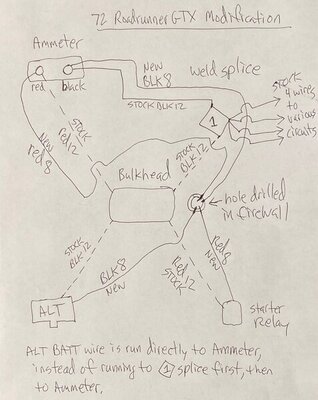 72 Roadrunner GTX Modification
Ammeter
red
black
NEW
BLK 8
weld splice
STOCK BLK 12
STOCK
4 wires
to
various
circuits
1
STOCK
red 12
NEW
red 8
STOCK
BLK 12
Bulkhead
hole drilled
in firewall
STOCK
BLK 12
BLK 8
NEW
Red 12
STOCK
Red 8
NEW
ALT
starter
Relay
ALT BATT wire is run directly to Ammeter,
instead of running to 1 splice first, then
to Ammeter.